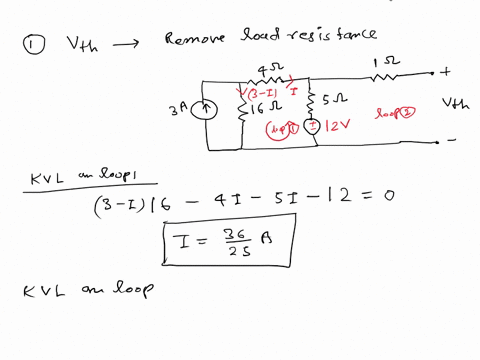 ① Vth → Remove load resistance
4Ω
1Ω
+
(3-I) I
3A
16Ω
5Ω
loop ②
Vth
loop ①
12V
-
KVL on loop1
(3-I)16 - 4I - 5I - 12 = 0
I = 36/25 A
KVL on loop